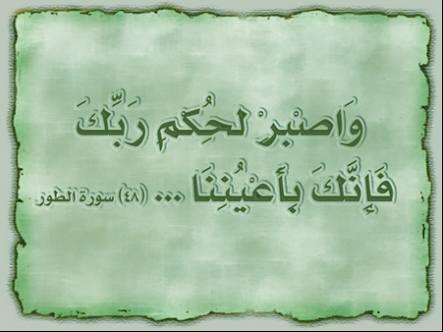 وَاصْبِرْ لحُكمِ رَبِّكَ
فَإِنَّكَ بِأَعْيُنِنَا ... (٤٨) سورة الطور